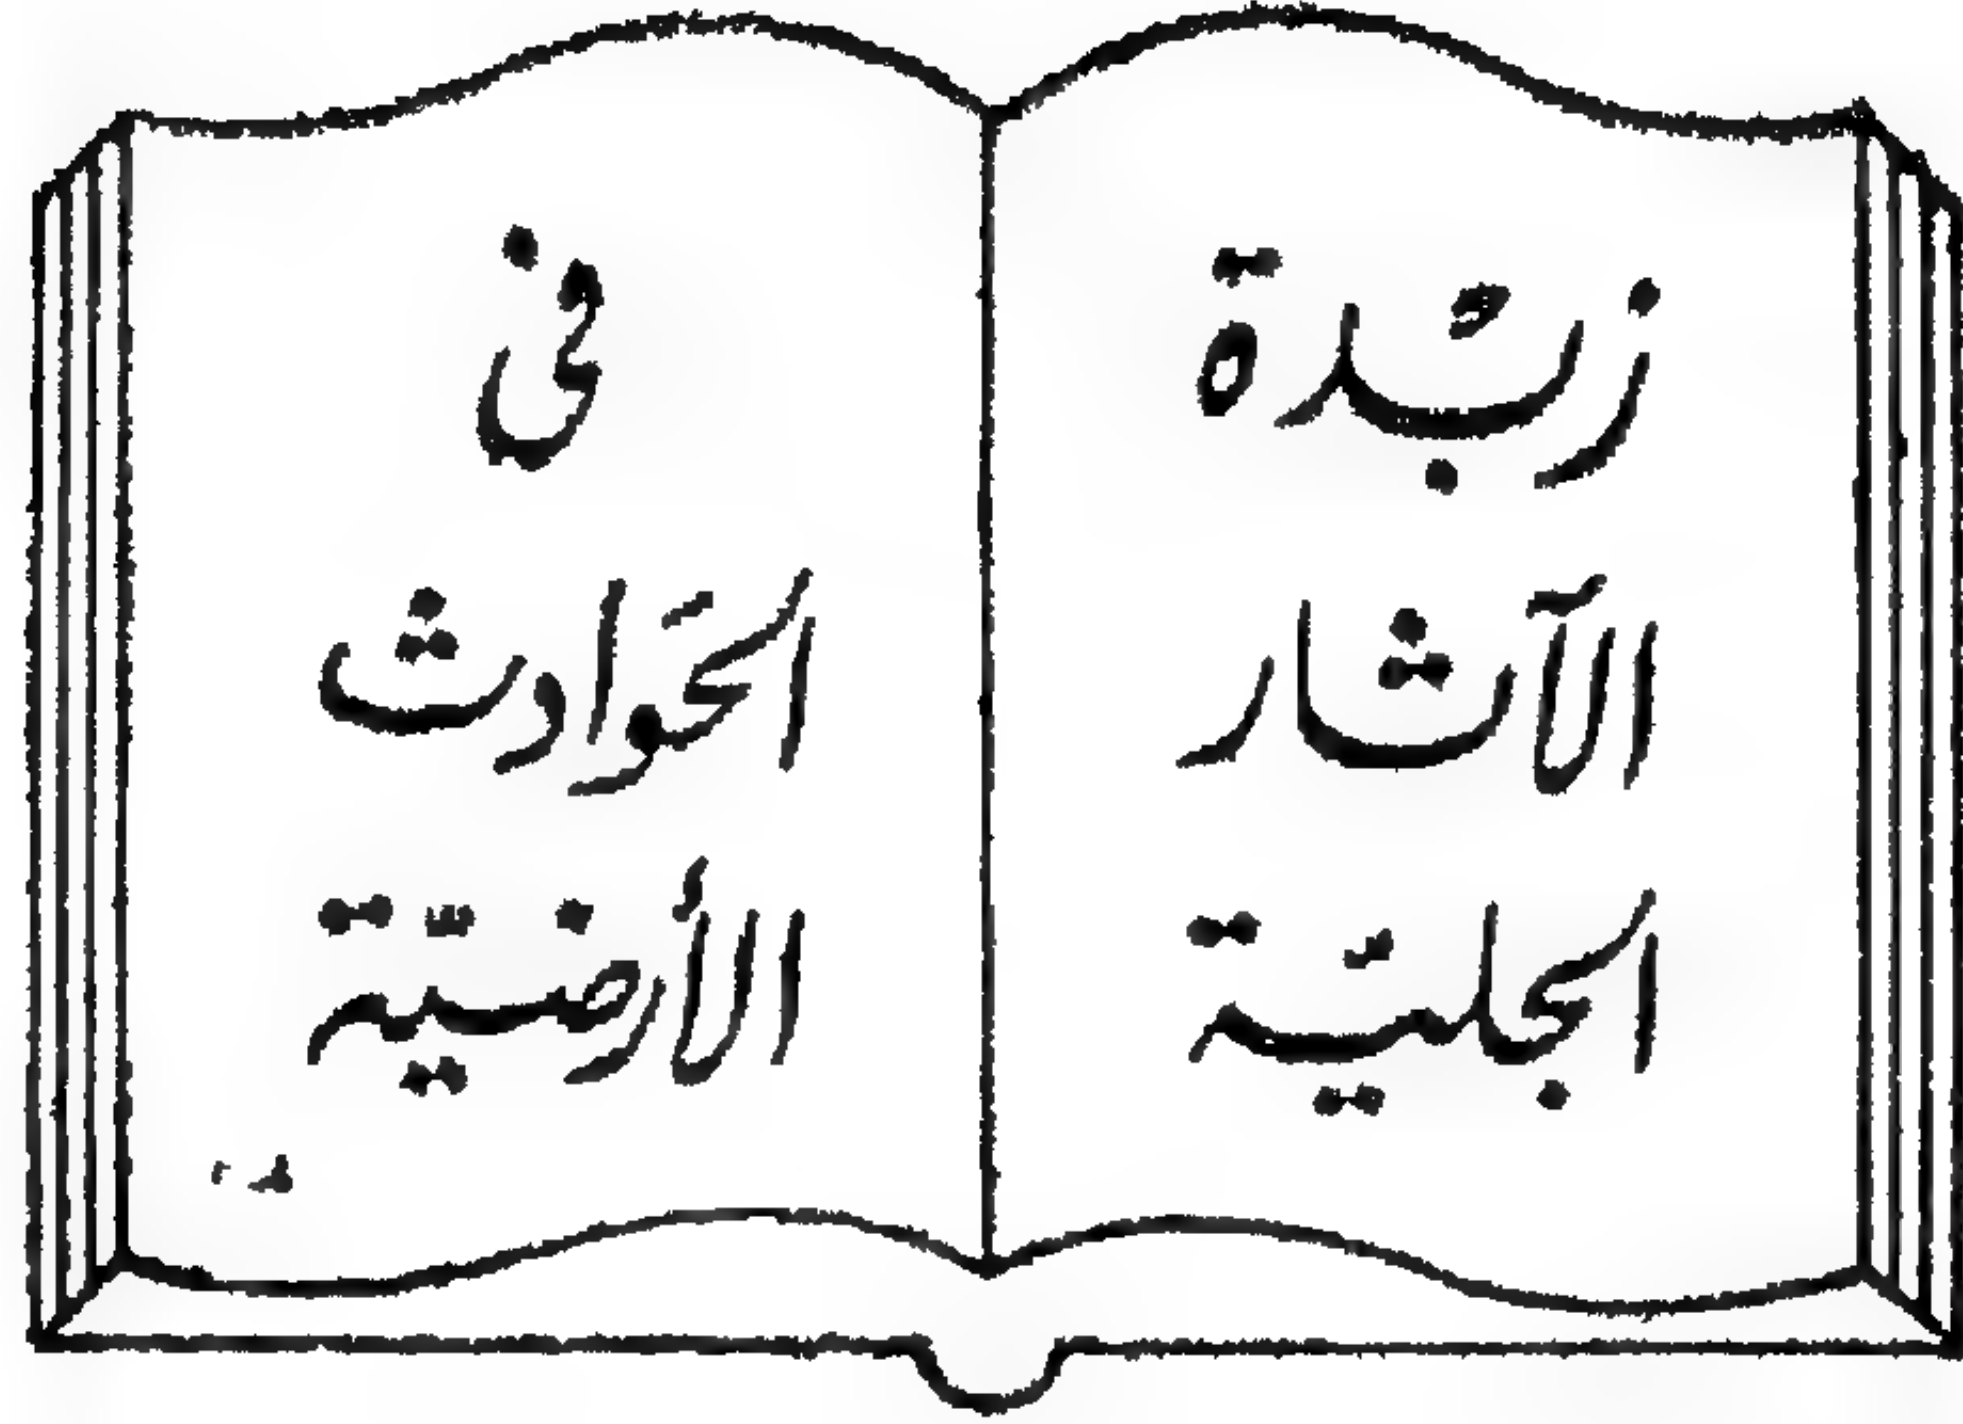 زبْدة
الآثار
الجليّة
فى
الحَوادث
الأرضيّة